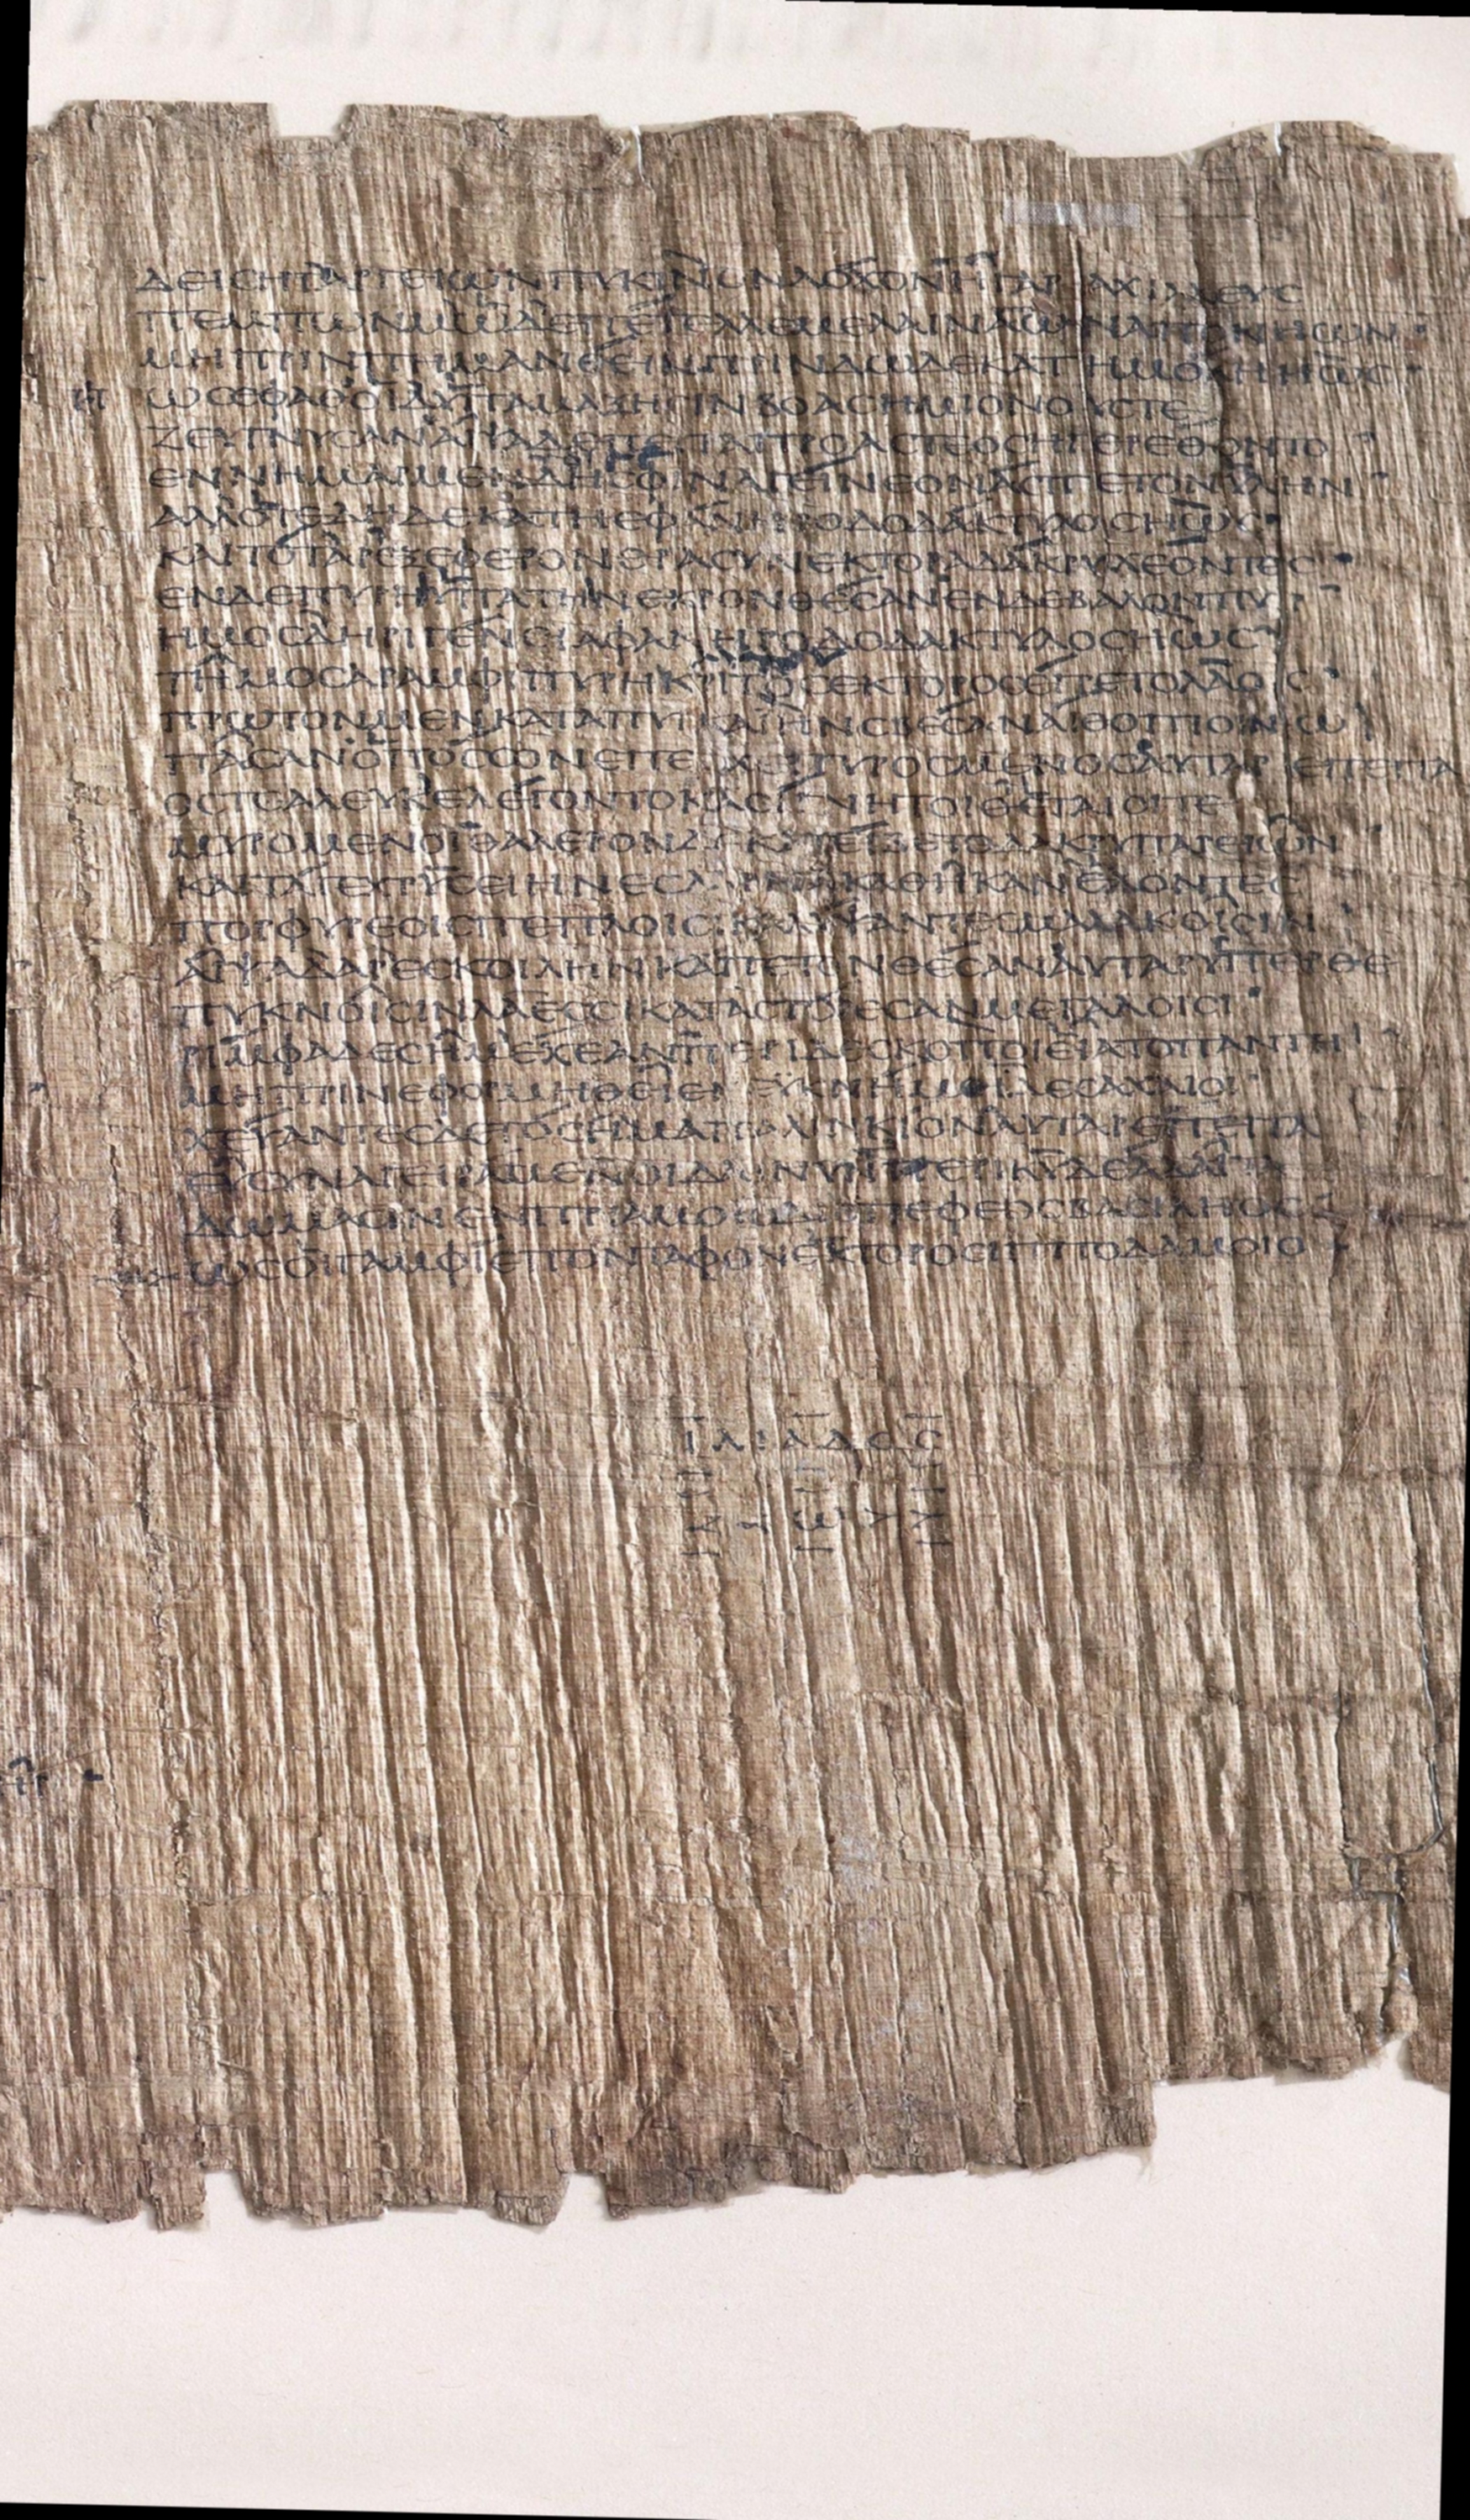 ΔΕΙϹΗΤΑΡΓΕΙΩΝΠΥΚΙΝΟΝΛΟΧΟΝΗΓΑΡΑΧΙΛΛΕΥϹ
ΠΕΜΠΩΝΜΩΔΕΠΕΤΕΛΛΕΜΕΛΑΙΝΑΩΝΑΠΟΝΗΩΝ
ΜΗΠΡΙΝΠΗΜΑΝΕΕΙΝΠΡΙΝΔΩΔΕΚΑΤΗΜΟΛΗΗΩϹ
ΠΟ ΩϹΕΦΑΘΟΙΔΥΠΑΜΑΞΗϹΙΝΒΟΑϹΗΜΙΟΝΟΥϹΤΕ
ΖΕΥΓΝΥϹΑΝΑΙΨΑΔΕΠΕΙΤΑΠΡΟΑϹΤΕΟϹΗΓΕΡΕΘΟΝΤΟ
ΕΝΝΗΜΑΡΜΕΝΔΗϹΦΙΝΑΓΕΙΝΕΟΝΑϹΠΕΤΟΝΥΛΗΝ
ΑΛΛΟΤΕΔΗΔΕΚΑΤΗΕΦΑΝΗΡΟΔΟΔΑΚΤΥΛΟϹΗΩϹ
ΚΑΙΤΟΤΑΡΕΞΕΦΕΡΟΝΘΡΑϹΥΝΕΚΤΟΡΑΔΑΚΡΥΧΕΟΝΤΕϹ
ΕΝΔΕΠΥΡΗΥΠΑΤΗΝΕΚΡΟΝΘΕϹΑΝΕΝΔΕΒΑΛΟΝΠΥΡ
ΗΜΟϹΔΗΡΙΓΕΝΕΙΑΦΑΝΗΡΟΔΟΔΑΚΤΥΛΟϹΗΩϹ
ΤΗΜΟϹΑΡΑΜΦΙΠΥΡΗΚΡΙΤΟϹΕΚΤΟΡΟϹΕΓΡΕΤΟΛΑΟϹ
ΠΡΩΤΟΝΜΕΝΚΑΤΑΠΥΡΚΑΙΗΝϹΒΕϹΑΝΑΙΘΟΠΙΟΙΝΩ
ΠΑϹΑΝΟΠΟϹϹΟΝΕΠΕϹΧΕΠΥΡΟϹΜΕΝΟϹΑΥΤΑΡΕΠΕΙΤΑ
ΟϹΤΕΑΛΕΥΚΕΛΕΓΟΝΤΟΚΑϹΙΓΝΗΤΟΙΘΕΤΑΙΟΙΤΕ
ΜΥΡΟΜΕΝΟΙΘΑΛΕΡΟΝΔΕΚΑΤΕΙΒΕΤΟΔΑΚΡΥΠΑΡΕΙΩΝ
ΚΑΙΤΑΓΕΧΡΥϹΕΙΗΝΕϹΛΑΡΝΑΚΑΘΗΚΑΝΕΛΟΝΤΕϹ
ΠΟΡΦΥΡΕΟΙϹΠΕΠΛΟΙϹΙΚΑΛΥΨΑΝΤΕϹΜΑΛΑΚΟΙϹΙΝ
ΑΙΨΑΔΑΡΕϹΚΟΙΛΗΝΚΑΠΕΤΟΝΘΕϹΑΝΑΥΤΑΡΥΠΕΡΘΕ
ΠΥΚΝΟΙϹΙΝΛΑΕϹϹΙΚΑΤΑϹΤΟΡΕϹΑΝΜΕΓΑΛΟΙϹΙ
ΡΙΜΦΑΔΕϹΗΜΕΧΕΑΝΠΕΡΙΔΕϹΚΟΠΟΙΕΙΑΤΟΠΑΝΤΗ
ΜΗΠΡΙΝΕΦΟΡΜΗΘΕΙΕΝΕΥΚΝΗΜΙΔΕϹΑΧΑΙΟΙ
ΧΕΥΑΝΤΕϹΔΕΤΟϹΗΜΑΠΑΛΙΝΚΙΟΝΑΥΤΑΡΕΠΕΙΤΑ
ΕΥϹΥΝΑΓΕΙΡΑΜΕΝΟΙΔΑΙΝΥΝΤΕΡΙΚΥΔΕΑΔΑΙΤΑ
ΔΩΜΑϹΙΝΕΝΠΡΙΑΜΟΙΟΔΙΟΤΡΕΦΕΟϹΒΑϹΙΛΗΟϹ
ΩϹΟΙΓΑΜΦΙΕΠΟΝΤΑΦΟΝΕΚΤΟΡΟϹΙΠΠΟΔΑΜΟΙΟ
ΙΛΙΑΔΟϹ
Ω